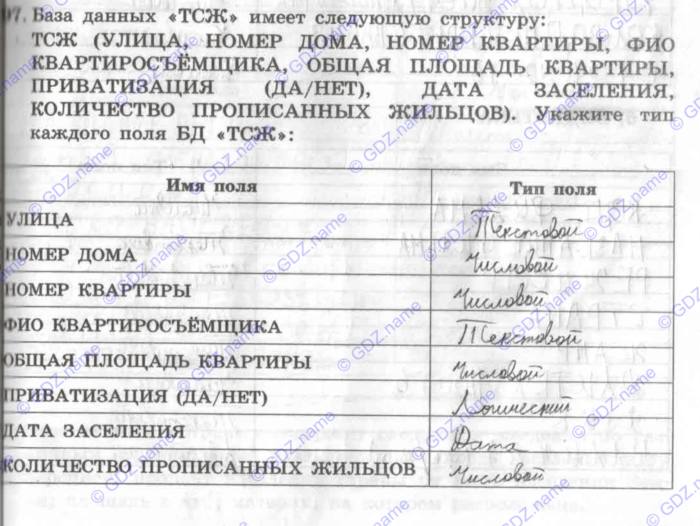 97. База данных «ТСЖ» имеет следующую структуру:
ТСЖ (УЛИЦА, НОМЕР ДОМА, НОМЕР КВАРТИРЫ, ФИО
КВАРТИРОСЪЁМЩИКА, ОБЩАЯ ПЛОЩАДЬ КВАРТИРЫ,
ПРИВАТИЗАЦИЯ (ДА/НЕТ), ДАТА ЗАСЕЛЕНИЯ,
КОЛИЧЕСТВО ПРОПИСАННЫХ ЖИЛЬЦОВ). Укажите тип
каждого поля БД «ТСЖ»:
Имя поля Тип поля
УЛИЦА Текстовой
НОМЕР ДОМА Числовой
НОМЕР КВАРТИРЫ Числовой
ФИО КВАРТИРОСЪЁМЩИКА Текстовой
ОБЩАЯ ПЛОЩАДЬ КВАРТИРЫ Числовой
ПРИВАТИЗАЦИЯ (ДА/НЕТ) Логический
ДАТА ЗАСЕЛЕНИЯ Дата
КОЛИЧЕСТВО ПРОПИСАННЫХ ЖИЛЬЦОВ Числовой
© GDZ.name